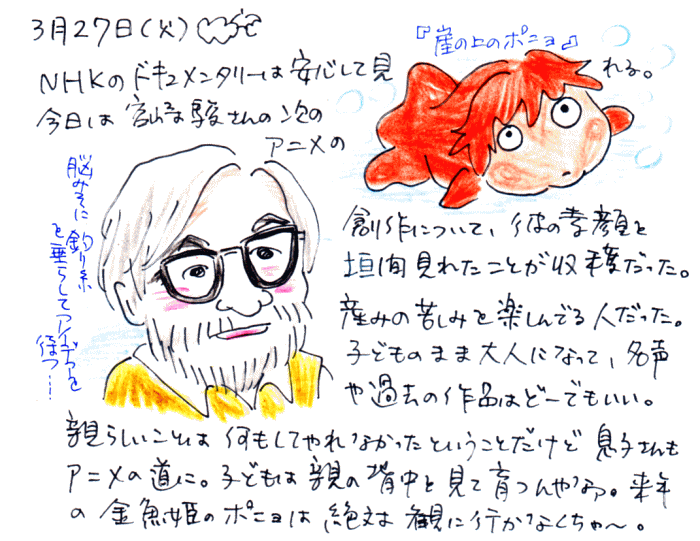 3月27日(火)
『崖の上のポニョ』
NHKのドキュメンタリーは安心して見れる。
今日は宮崎駿さんの次の
アニメの
脳みそに釣り糸
を垂らしてアイデアを
待つ…
創作について、彼の素顔を
垣間見れたことが収穫だった。
産みの苦しみを楽しんでる人だった。
子どものまま大人になって、名声
や過去の作品はどーでもいい。
親らしいことは何もしてやれなかったということだけど息子さんも
アニメの道に。子どもは親の背中を見て育つんやなァ。来年
の金魚姫のポニョは絶対観に行かなくちゃ〜。